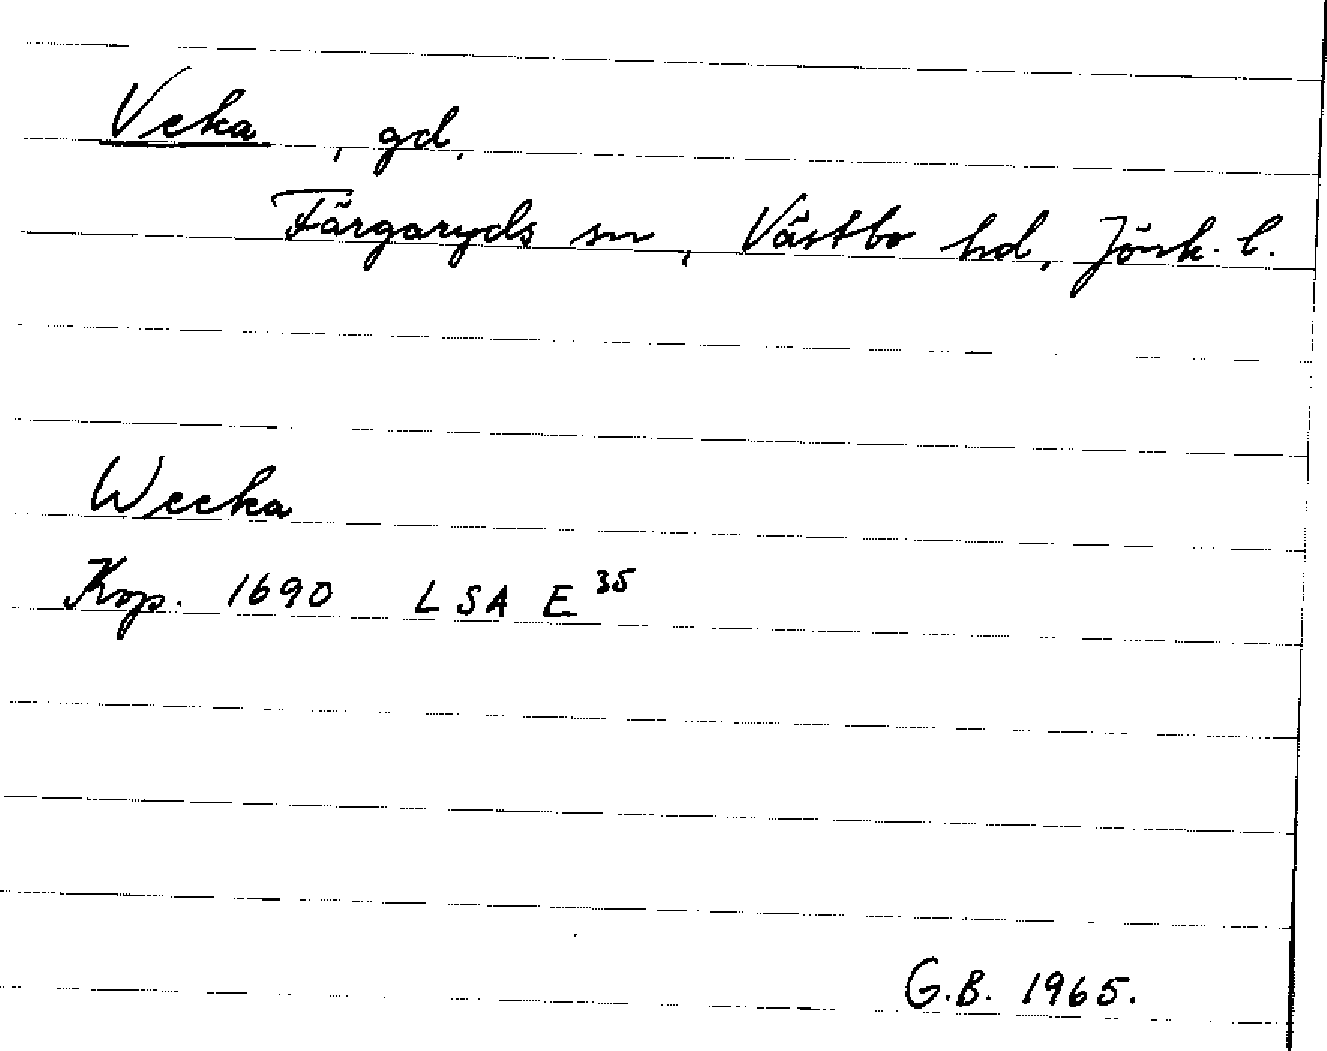 Veka, gd,
Färgaryds sn, Västbo hd, Jönk. l.
Weeka
Kop. 1690 LSA E 35
G.B. 1965.